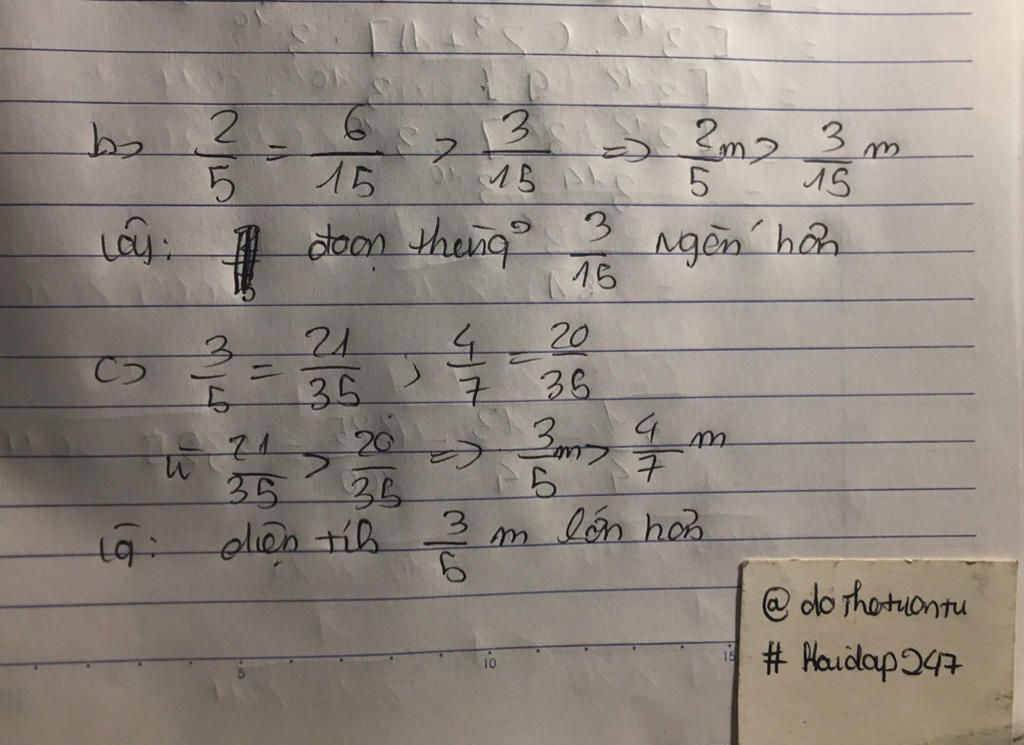 b> 2/5 = 6/15 > 3/15 => 2/5 m > 3/15 m
Vậy: đoạn thẳng 3/15 ngắn hơn
c> 3/5 = 21/35 ; 4/7 = 20/35
vì 21/35 > 20/35 => 3/5 m > 4/7 m
diện tích 3/5 m lớn hơn
5 10 15
@dothatuantu
#Hoidap247